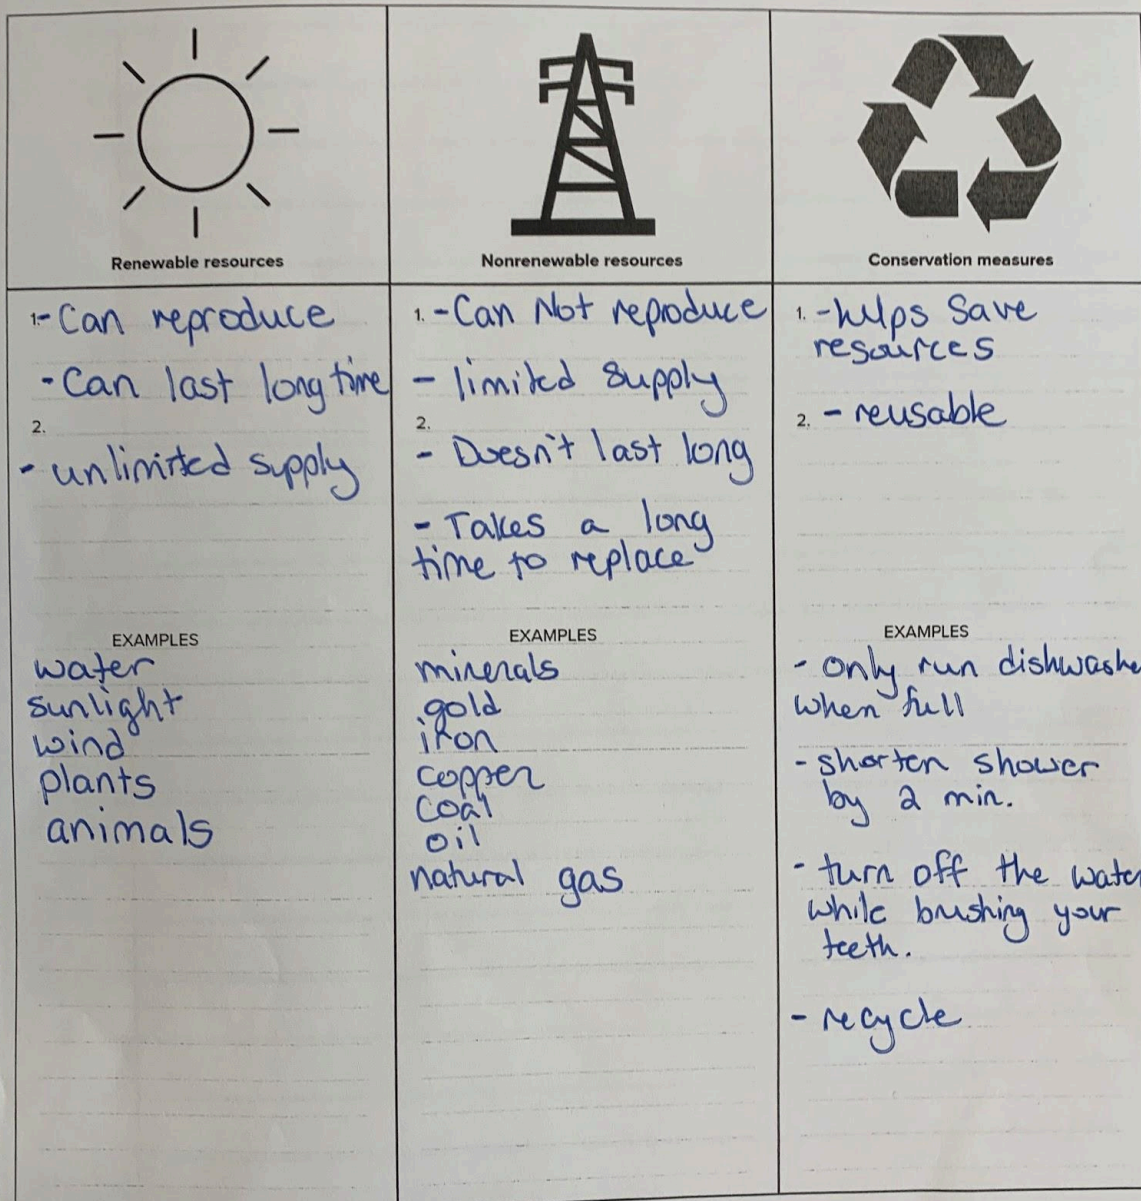 Renewable resources
1.- Can reproduce
- Can last long time
2.
- unlimited supply
EXAMPLES
water
sunlight
wind
plants
animals
Nonrenewable resources
1. - Can Not reproduce
- limited supply
2.
- Doesn't last long
- Takes a long
time to replace
EXAMPLES
minerals
gold
iron
copper
coal
oil
natural gas
Conservation measures
1. - helps save
resources
2. - reusable
EXAMPLES
- only run dishwashe
when full
- shorten shower
by 2 min.
- turn off the water
while brushing your
teeth.
- recycle